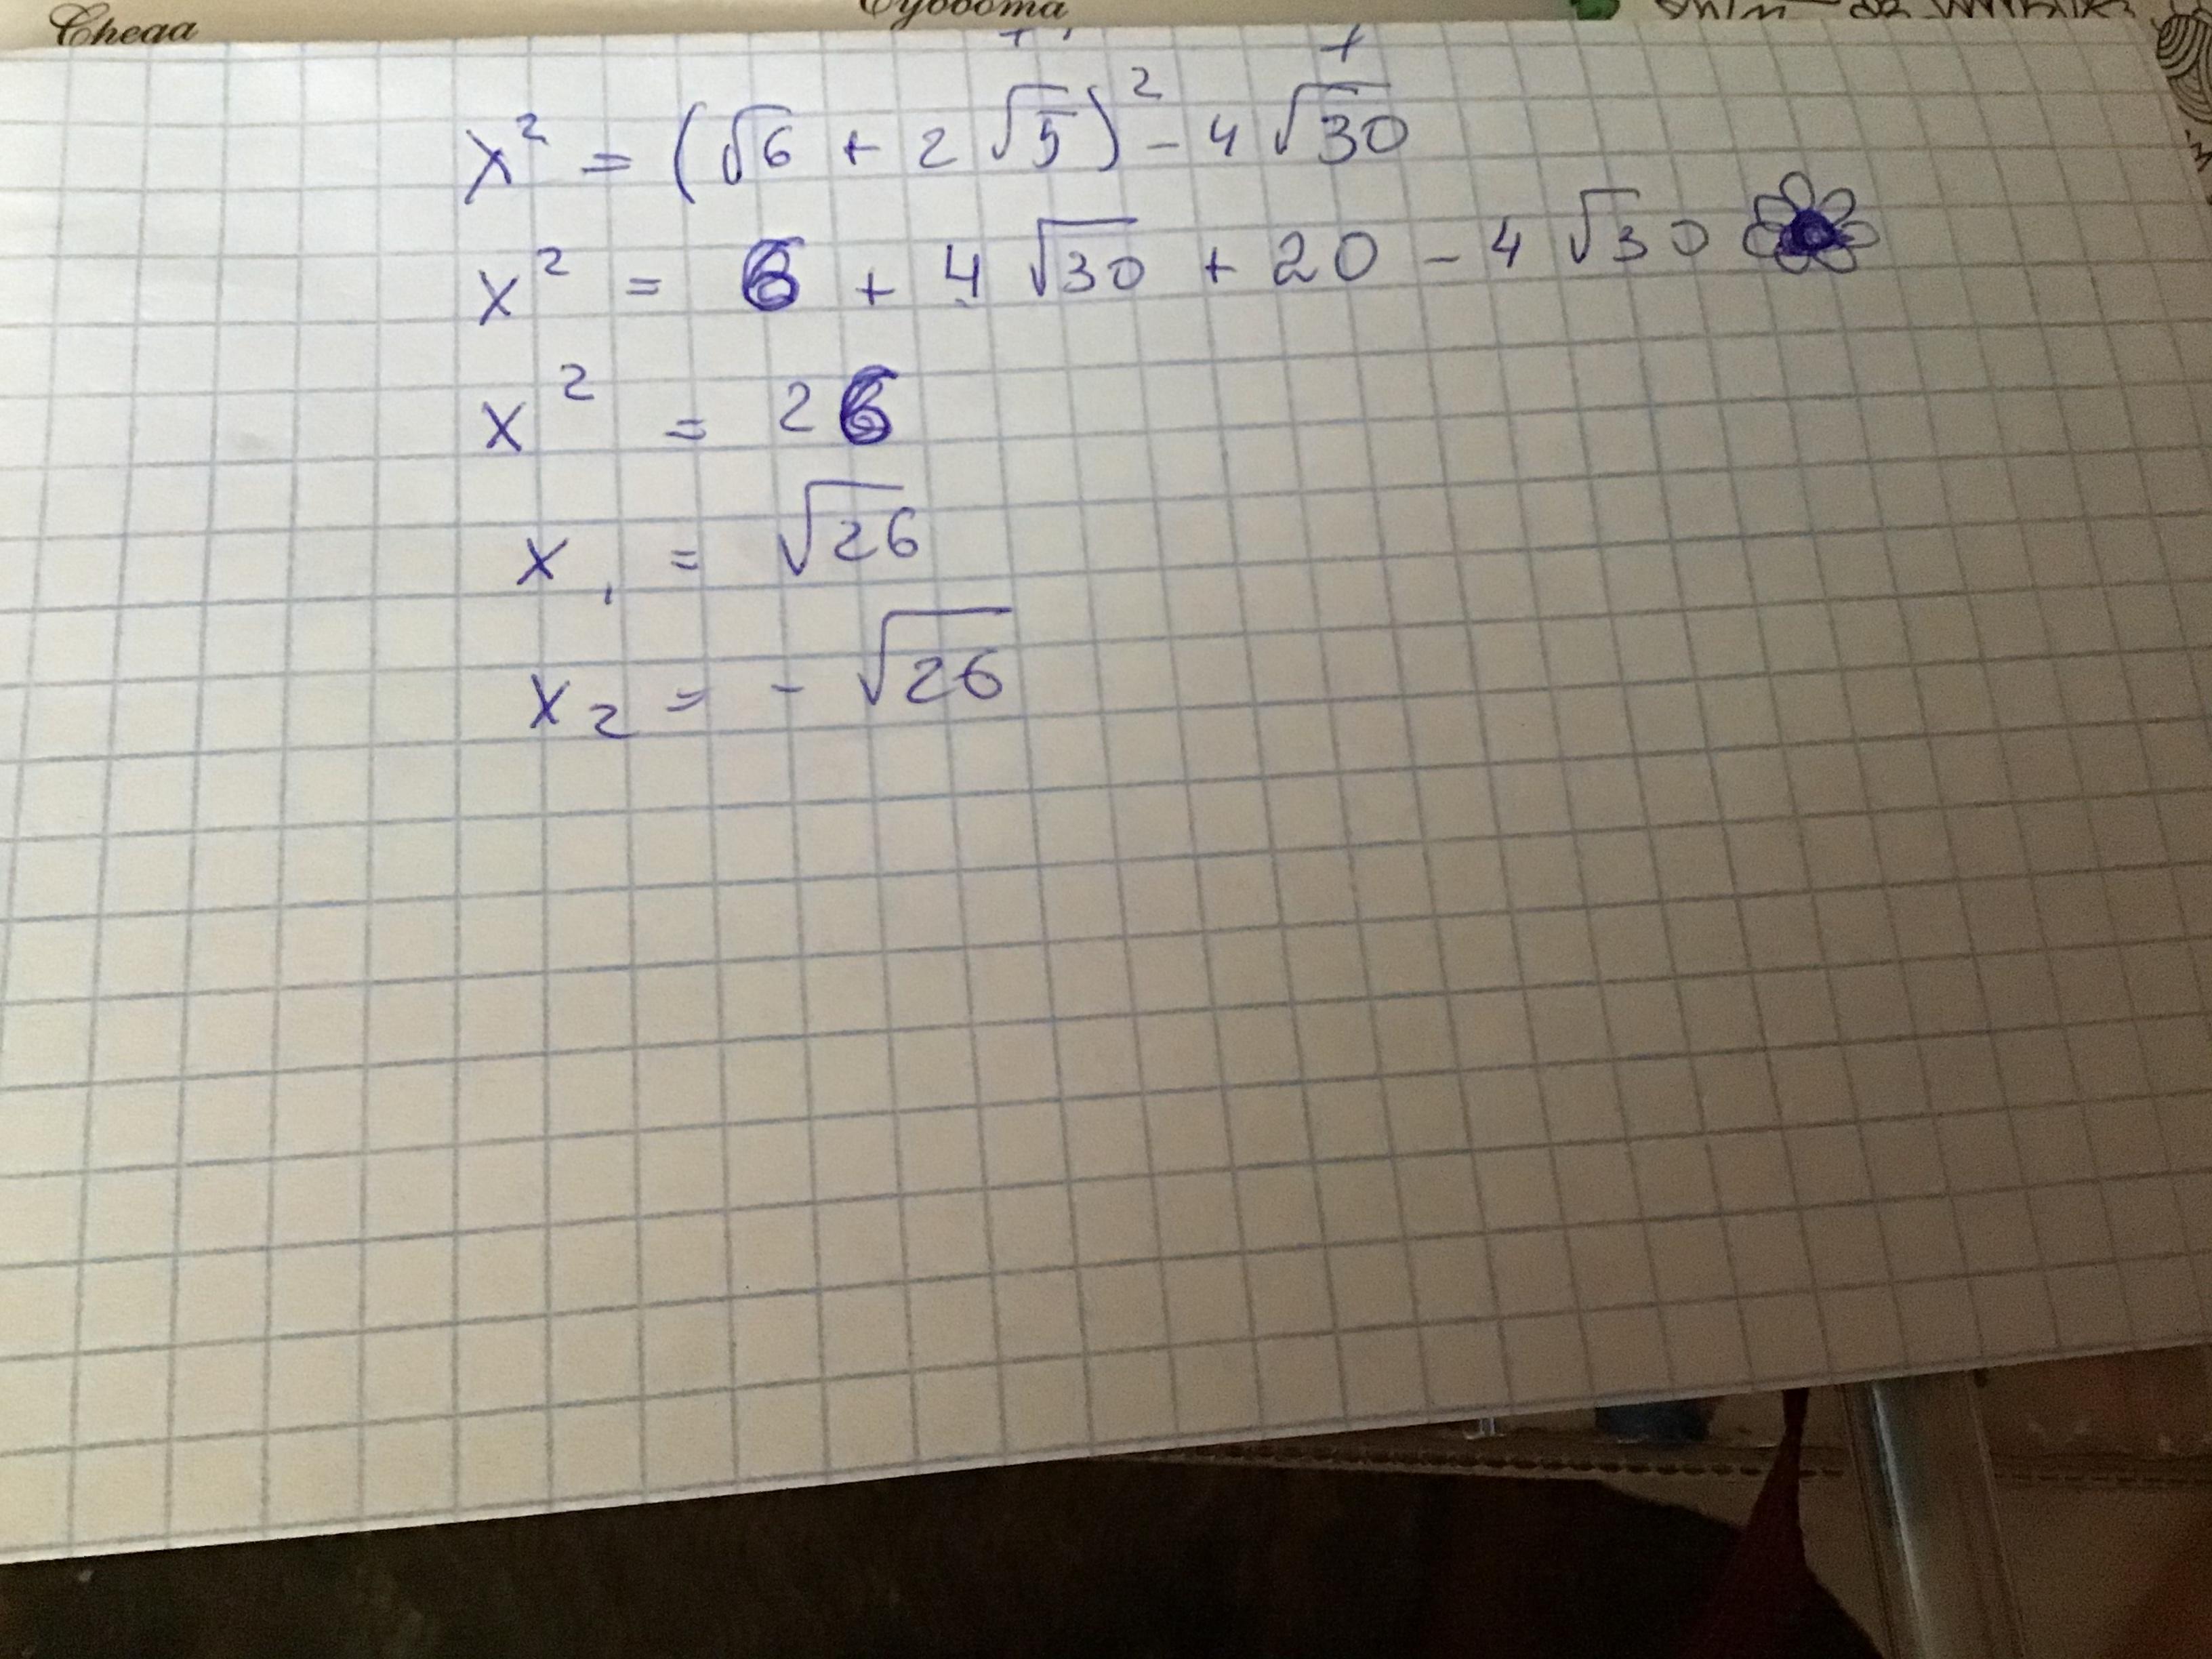 Среда Суббота
x² = (√6 + 2√5)² - 4√30
x² = 6 + 4√30 + 20 - 4√30
x² = 26
x₁ = √26
x₂ = - √26